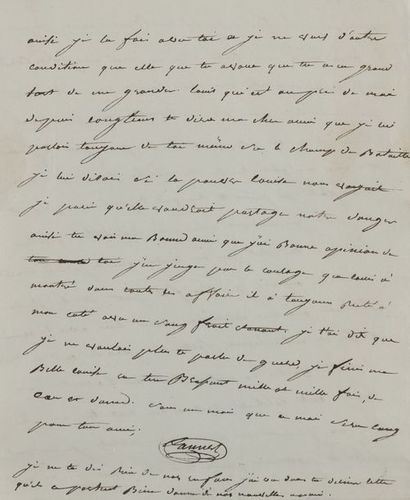 ainsi je la fais avec toi et je ne veux d'autre
condition que celle que tu avoue que tu a eu grand
tort de me gronder Louis qui est au près de moi
depuis longtems te dira ma cher amie que je lui
parlois toujour de toi même sur le champ de Bataille
je lui disois si la pauvre Louise nous voyait
je parie qu'elle voudroit partage notre danger
ainsi tu vois ma Bonne amie que j'ai Bonne opinion de
toi j'en juge par le courage que Louis à
montré dans toute les affaire il à toujour resté à
mon coté avec un sang froid étonant je t'ai dit que
je ne voulois plus te parle de guerre, je finis ma
Belle Louise en ten Brassant mille et mille fois, de
Cœur et d'ame.
pour ton ami,
Lannes
je ne te dis rien de nos enfans j'ai vu dans ta dernier lettre
qu'ils se portent Bien donne de nos nouvelles